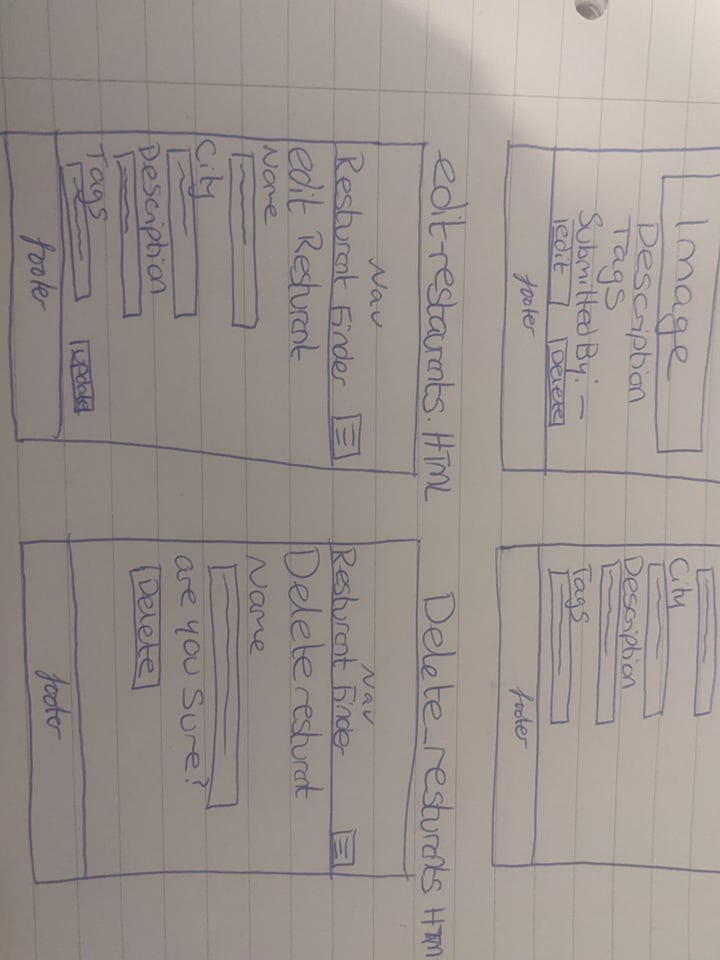 Image
Description
Tags
Submitted By: —
edit Delete
footer
City
Description
Tags
footer
edit-restaurants.HTML
Nav
Resturant Finder
edit Resturant
Name
City
Description
Tags
update
footer
Delete_resturants HTML
Nav
Resturant Finder
Delete resturant
Name
are you Sure?
Delete
footer